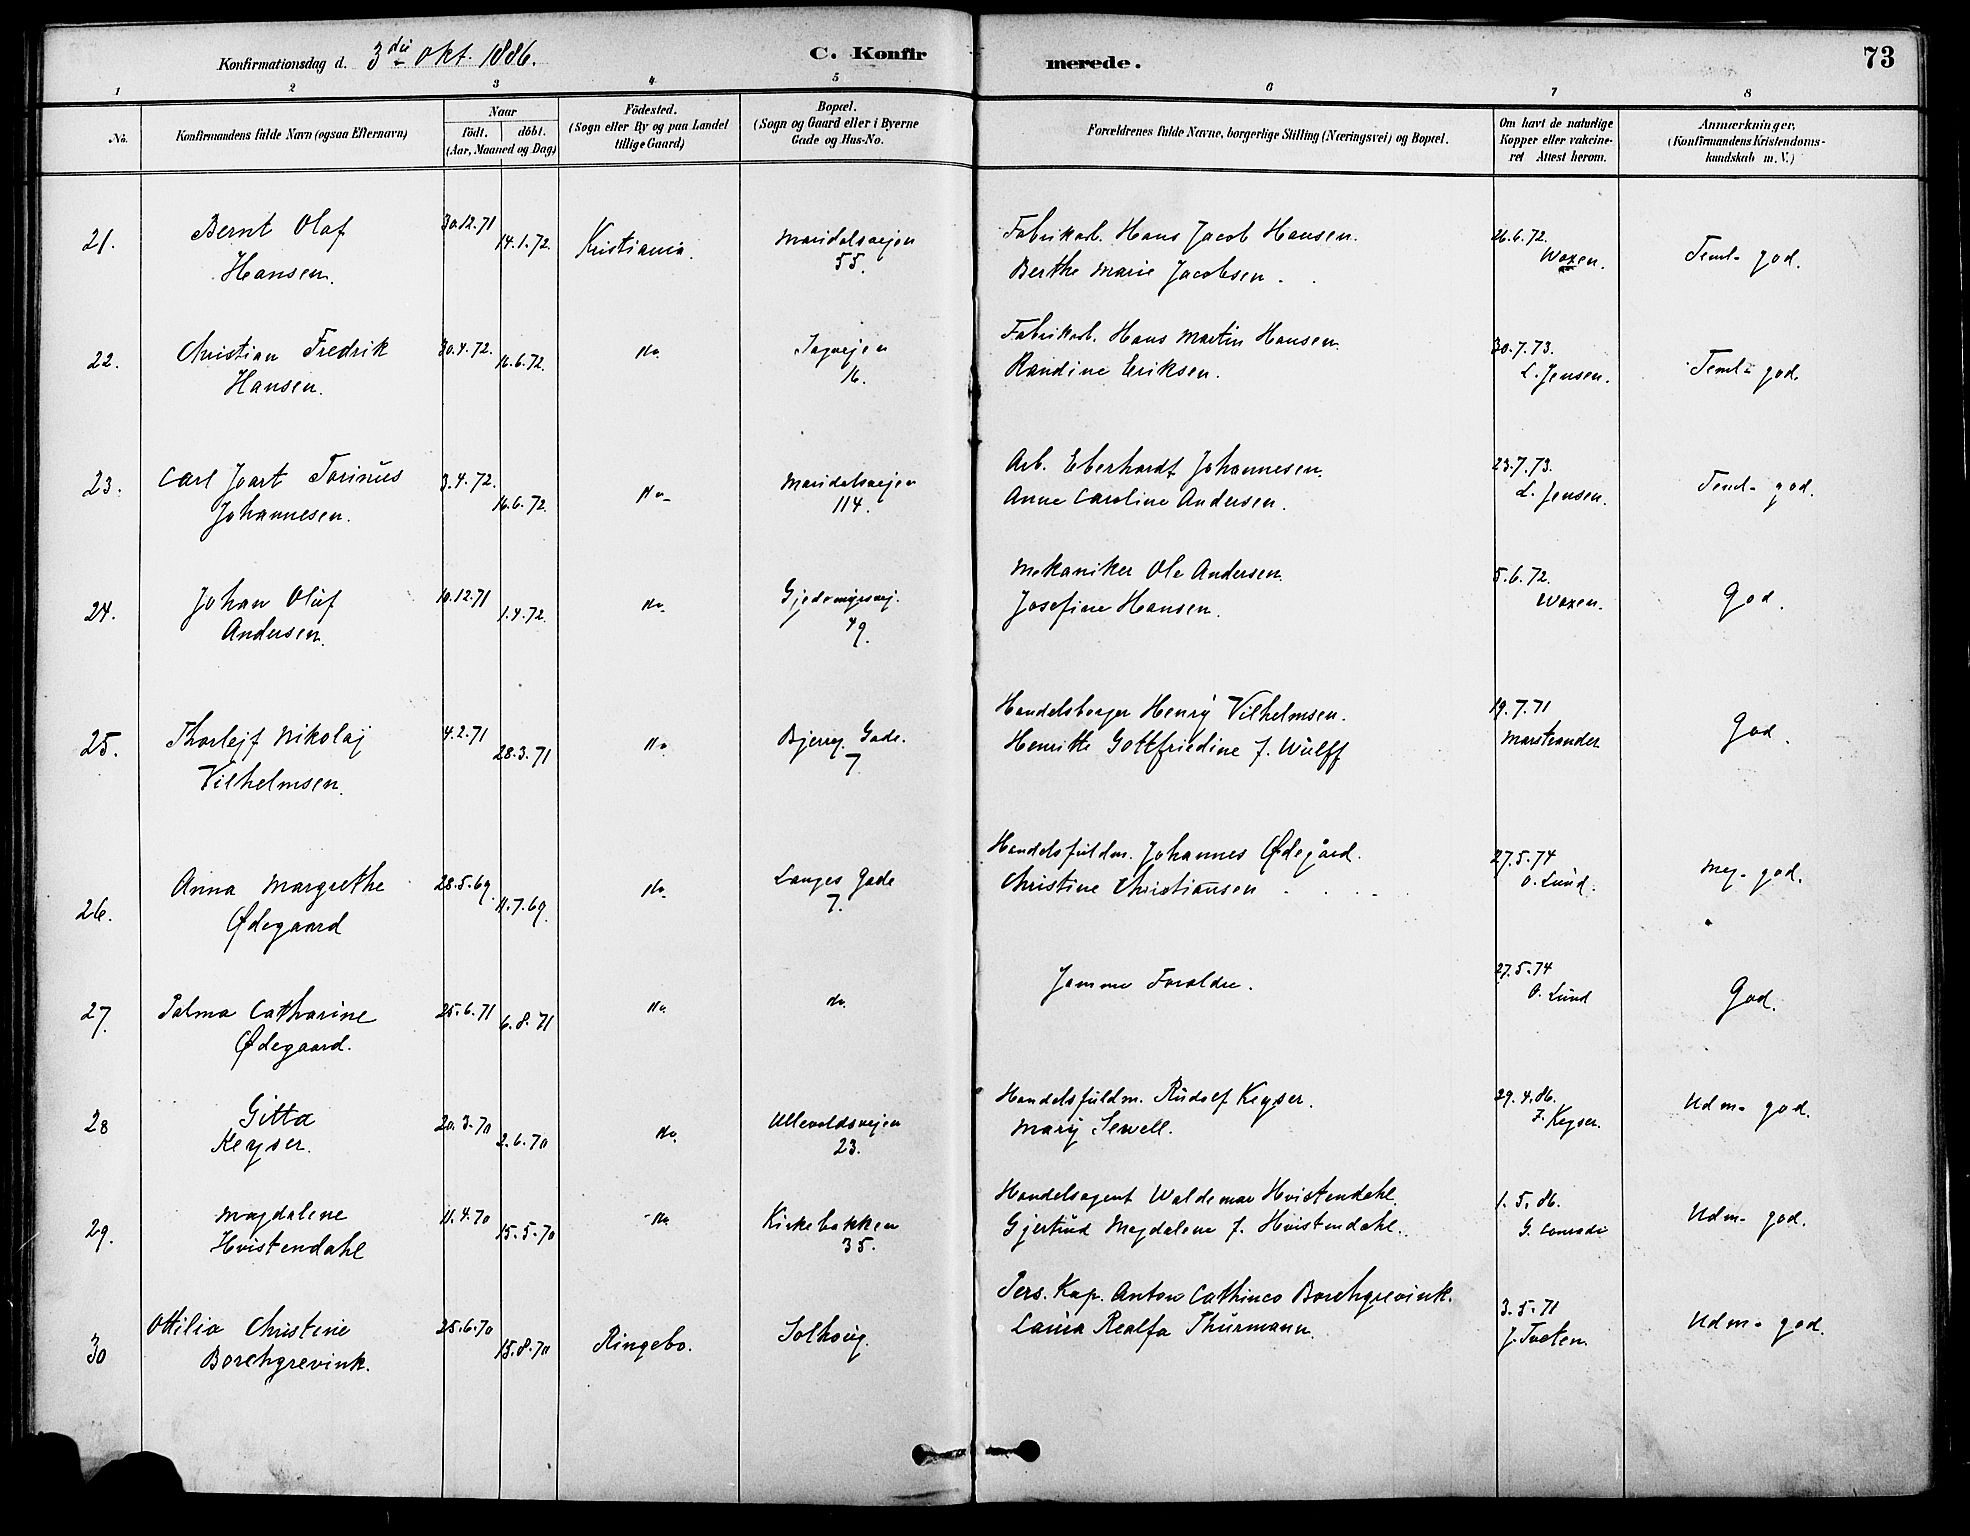 Konfirmationsdag d. 3die Okt. 1886.
C. Konfirmerede.
73
1 2 3 4 5 6 7 8
No.
Konfirmandens fulde Navn (ogsaa Efternavn)
Naar
födt. döbt.
(Aar, Maaned og Dag)
Födested.
(Sogn eller By og paa Landet
tillige Gaard)
Bopæl.
(Sogn og Gaard eller i Byerne
Gade og Hus-No.
Forældrenes fulde Navne, borgerlige Stilling (Næringsvei) og Bopæl.
Om havt de naturlige
Kopper eller vakcine-
ret Attest herom.
Anmærkninger.
(Konfirmandens Kristendoms-
kundskab m. V.)
21. Bernt Olaf
Hansen.
30.12.71
14.1.72
Kristiania.
Maridalsvejen
55.
Fabrikarb. Hans Jacob Hansen.
Berthe Marie Jacobsen.
26.6.72.
Woxen.
Teml. god.
22. Christian Fredrik
Hansen.
30.4.72.
16.6.72.
Do.
Sagvejen
16.
Fabrikarb. Hans Martin Hansen.
Randine Eriksen.
30.7.73.
L. Jensen.
Teml. god.
23. Carl Joart Torinus
Johannesen.
3.4.72.
16.6.72.
Do.
Maridalsvejen
114.
Arb. Eberhardt Johannesen.
Anne Caroline Andersen.
23.7.73.
L. Jensen.
Teml. god.
24. Johan Oluf
Andersen.
10.12.71
1.4.72.
Do.
Gjedemyrsvej.
49.
Mekaniker Ole Andersen.
Josefine Hansen.
5.6.72.
Woxen.
God.
25. Thorlejf Nikolaj
Vilhelmsen.
4.2.71
28.3.71
Do.
Bjerreg. Gade.
7.
Handelsborger Henry Vilhelmsen.
Henritte Gottfriedine f. Wulff
19.7.71
Marstrander
God.
26. Anna Margrethe
Ødegaard
28.5.69.
11.7.69.
Do.
Langes Gade
7.
Handelsfuldm. Johannes Ødegård.
Christine Christiansen
27.5.74
O. Lund.
Meg. god.
27. Palma Catharine
Ødegaard.
25.6.71
6.8.71
Do.
Do.
Samme Foraldre.
27.5.74
O. Lund
God.
28 Gitta
Keyser.
20.3.70
2.6.70
Do.
Ullevoldsvejen
23.
Handelsfuldm. Rudolf Keyser.
Mary Sewell.
29.4.86.
F. Keyser.
Udm. god.
29. Magdalene
Hvistendahl
11.4.70
15.5.70
Do.
Kirkebakken
35.
Handelsagent Waldemar Hvistendahl.
Gjertrud Magdalene f. Hvistendahl.
1.5.86.
G. Conradi
Udm. god.
30 Ottilia Christine
Borchgrevink.
25.6.70
15.8.70
Ringebo.
Solhoug.
Pers. Kap. Anton Cathinco Borchgrevink.
Laura Realfa Thurmann.
3.5.71
J. Tveten.
Udm. god.